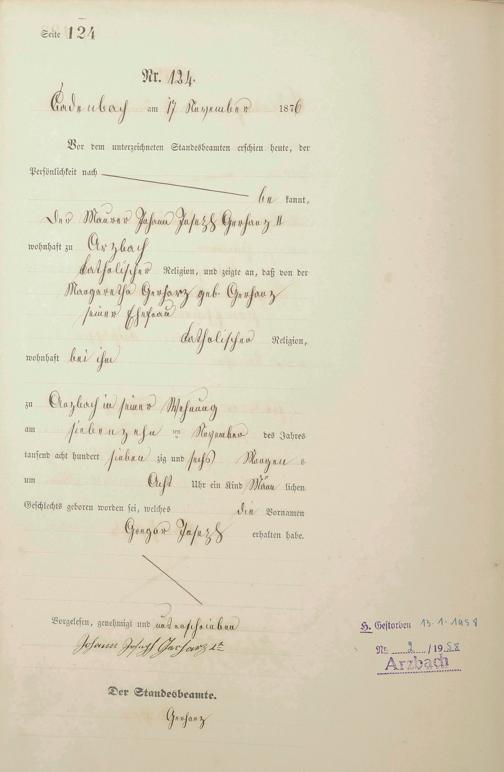 Seite 124
Nr. 124.
Cadenbach am 17 November 1876
Vor dem unterzeichneten Standesbeamten erschien heute, der
Persönlichkeit nach
be kannt,
der Maurer Johann Joseph Gerharz II
wohnhaft zu Arzbach
katholischer Religion, und zeigte an, daß von der
Margaretha Gerharz geb. Gerharz
seiner Ehefrau
katholischer Religion,
wohnhaft bei ihm
zu Arzbach in seiner Wohnung
am siebenzehn ten November des Jahres
tausend acht hundert sieben zig und sechs Morgens
um Acht Uhr ein Kind Männ lichen
Geschlechts geboren worden sei, welches die Vornamen
Gregor Joseph erhalten habe.
Vorgelesen, genehmigt und unterschrieben
Johann Joseph Gerharz 2te
Der Standesbeamte.
Gerharz
H. Gestorben 13.1.1958
Nr. 2 / 1958
Arzbach